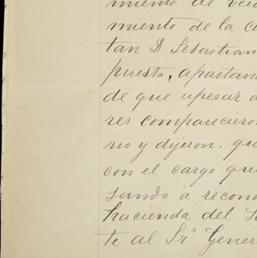 miento de veci
miento de la c
tan D. Sebastian
puesta, apartam
de que apesar d
res comparecieron
rio y dijeron: qu
con el cargo que
sando a recono
hacienda del S
te al Sr. Gener